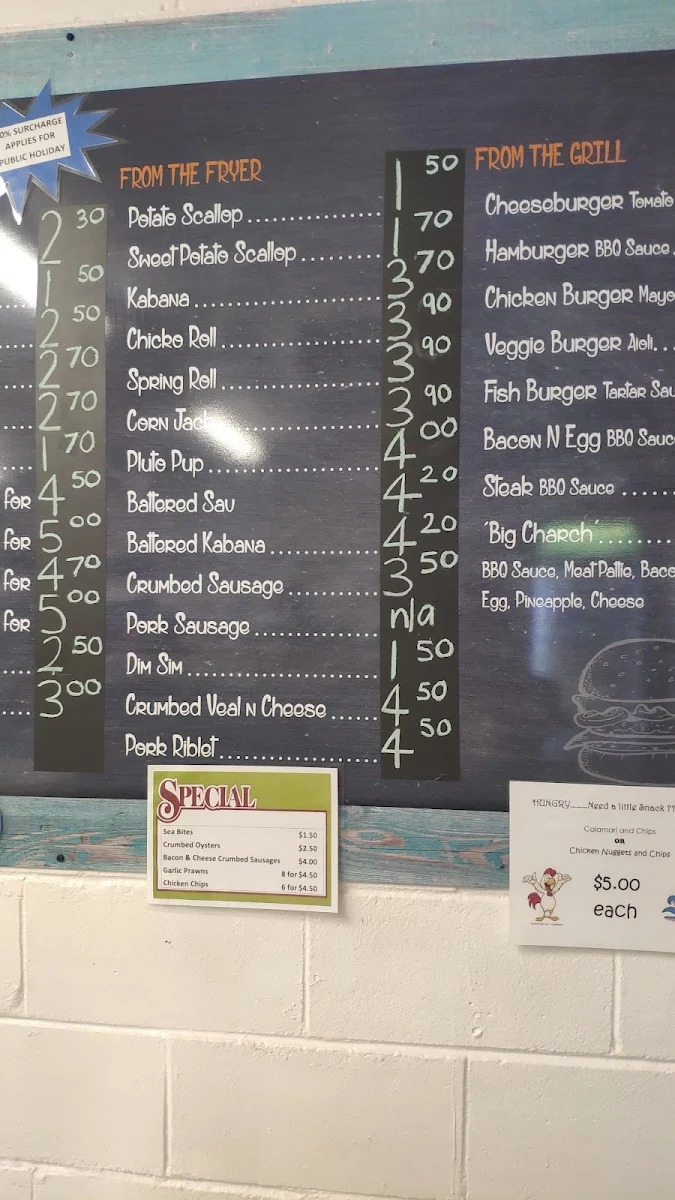 0% SURCHARGE
APPLIES FOR
PUBLIC HOLIDAY
2 30
1 50
2 50
2 70
2 70
1 70
for 4 50
for 5 00
for 4 70
for 5 00
2 50
3 00
FROM THE FRYER
Potato Scallop 1 50
Sweet Potato Scallop 1 70
Kabana 3 70
Chicko Roll 3 90
Spring Roll 3 90
Corn Jack 3 90
Pluto Pup 4 00
Battered Sav 4 20
Battered Kabana 4 20
Crumbed Sausage 3 50
Pork Sausage n/a
Dim Sim 1 50
Crumbed Veal N Cheese 4 50
Pork Riblet 4 50
FROM THE GRILL
Cheeseburger Tomato
Hamburger BBQ Sauce
Chicken Burger Mayo
Veggie Burger Aioli
Fish Burger Tartar Sau
Bacon N Egg BBQ Sauc
Steak BBQ Sauce
'Big Charch'
BBQ Sauce, Meat Pattie, Baco
Egg, Pineapple, Cheese
SPECIAL
Sea Bites $1.50
Crumbed Oysters $2.50
Bacon & Cheese Crumbed Sausages $4.00
Garlic Prawns 8 for $4.50
Chicken Chips 6 for $4.50
HUNGRY......Need a little Snack ??
Calamari and Chips
OR
Chicken Nuggets and Chips
$5.00
each